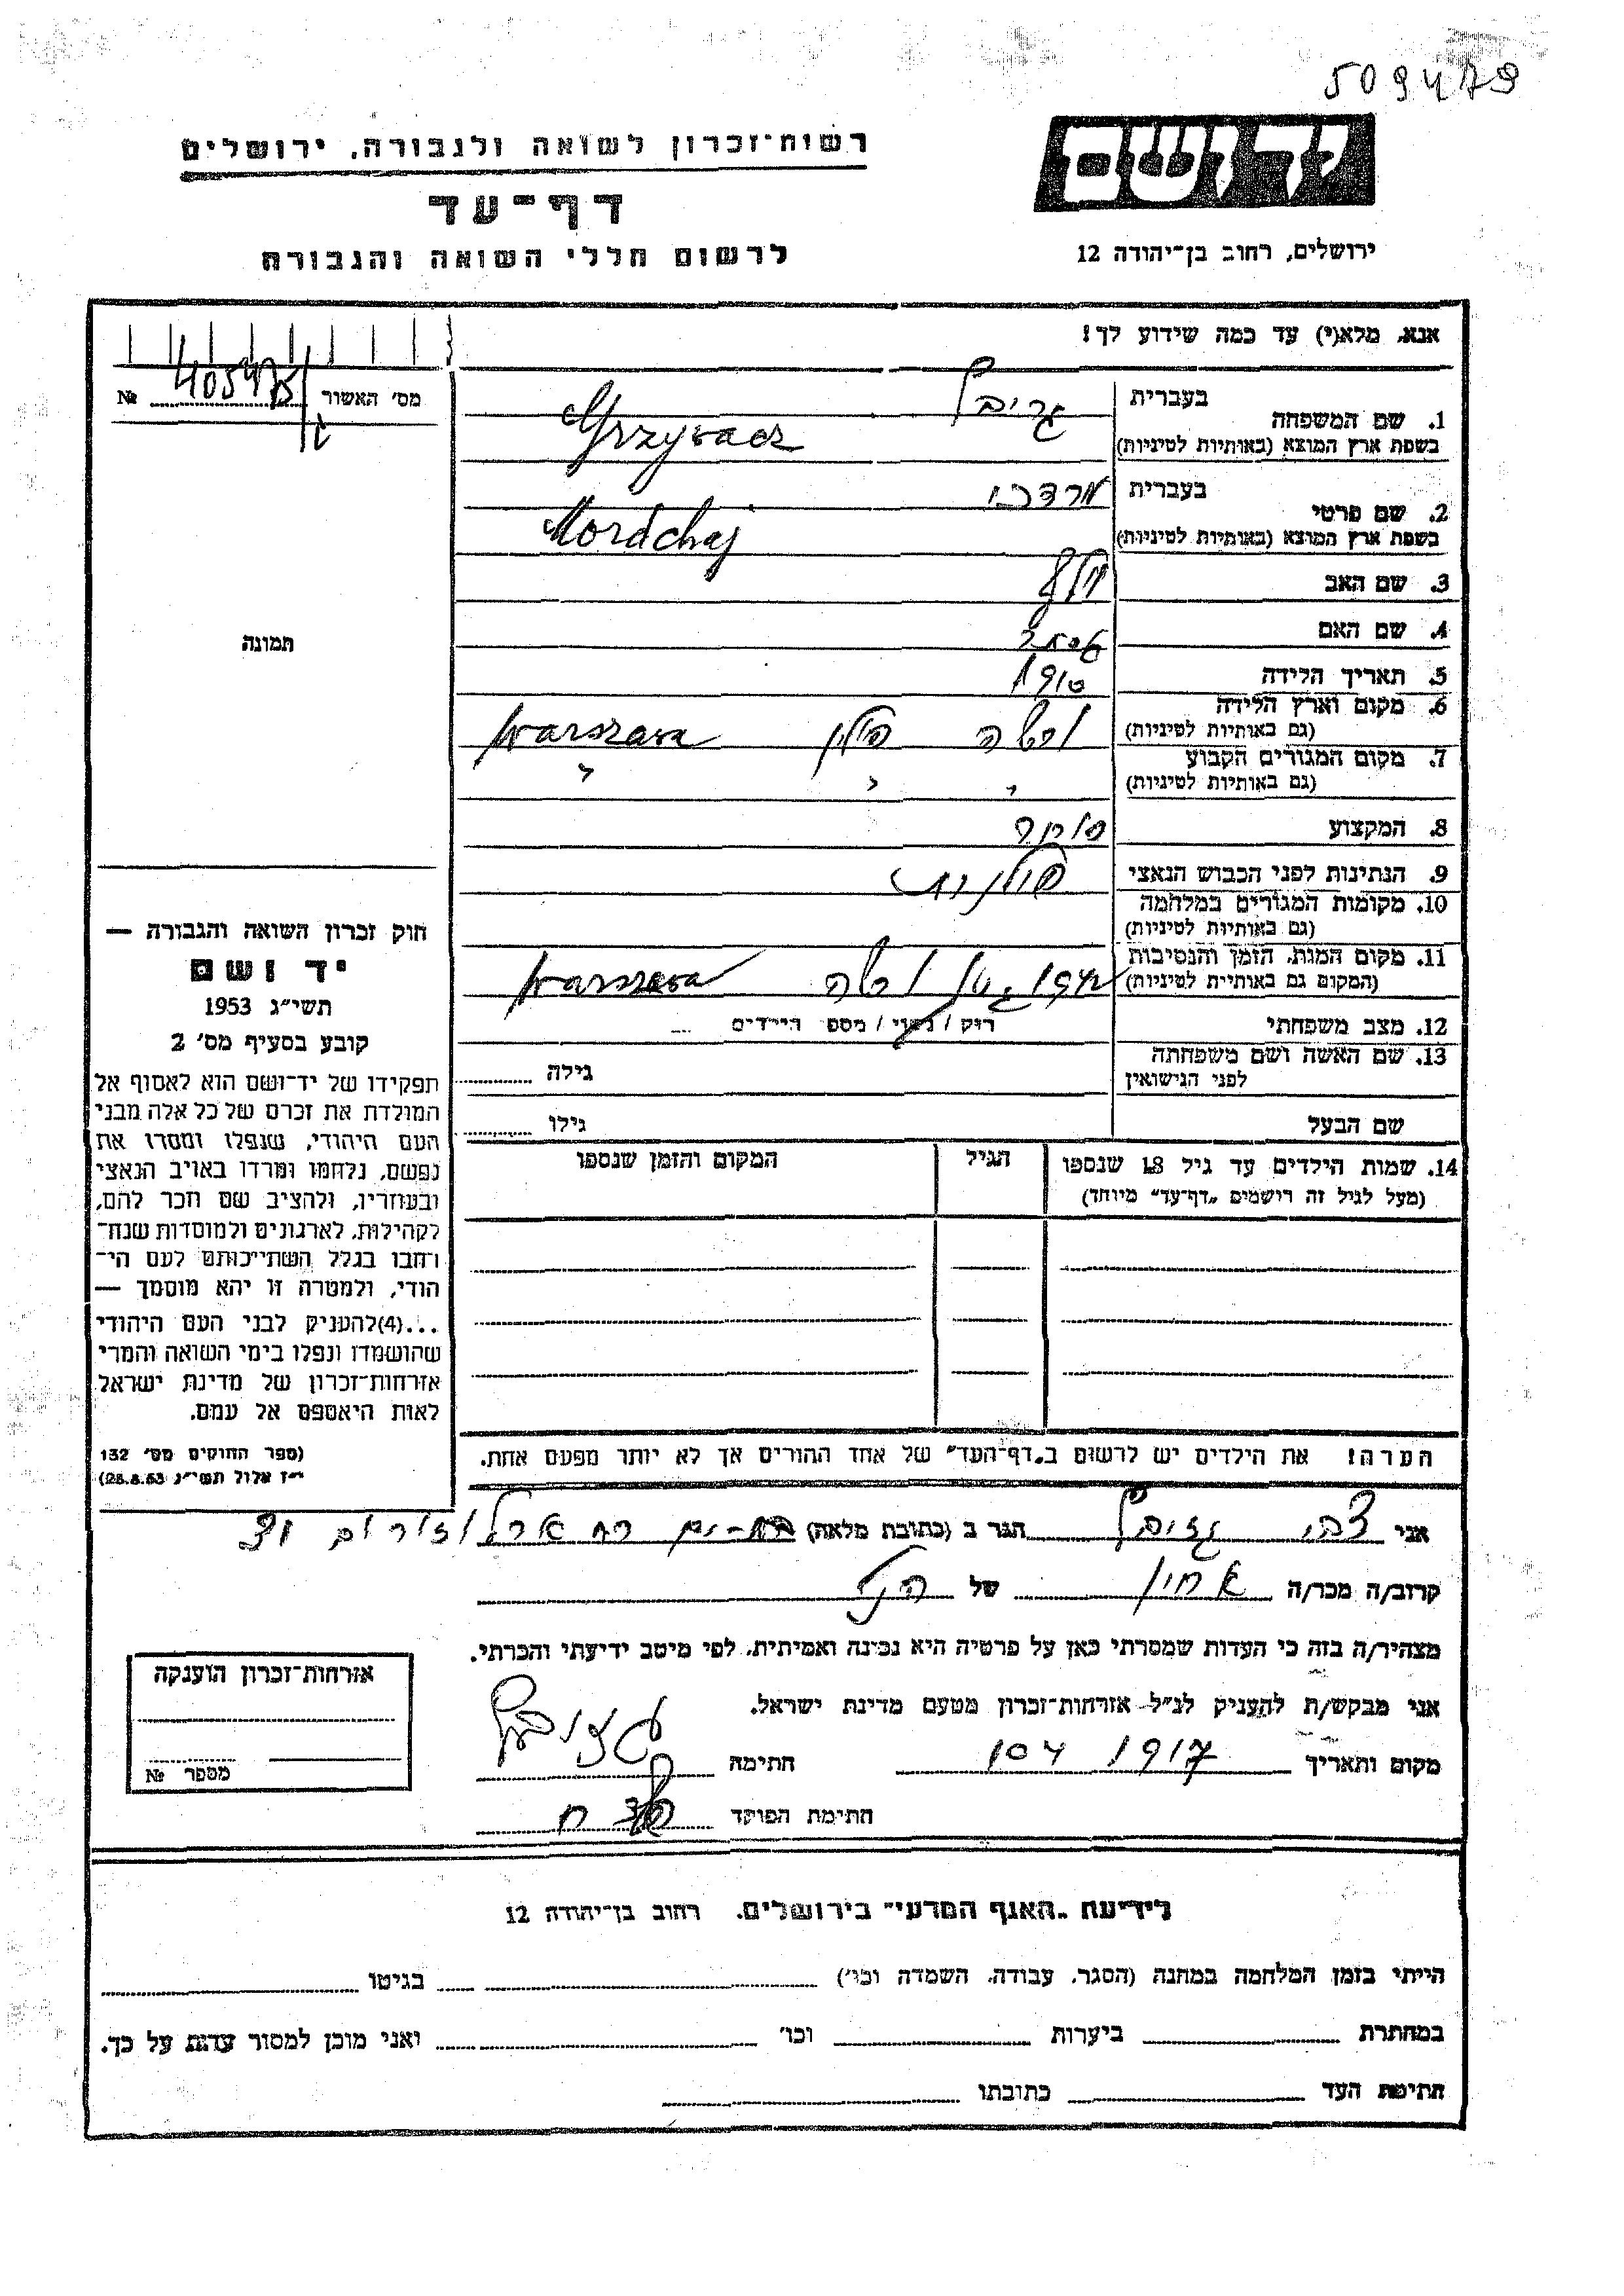 509479
רשות־זכרון לשואה ולגבורה, ירושלים
דף־עד
לרשום חללי השואה והגבורה
יד ושם
ירושלים, רחוב בן־יהודה 12
אנא, מלא(י) עד כמה שידוע לך!
מס' האשור 405475 №
1. שם המשפחה בעברית
בשפת ארץ המוצא (באותיות לטיניות)
2. שם פרטי בעברית מרדכי
בשפת ארץ המוצא (באותיות לטיניות) Mordchaj
3. שם האב
4. שם האם
5. תאריך הלידה 1910
6. מקום וארץ הלידה ורשה פולין Warszawa
(גם באותיות לטיניות)
7. מקום המגורים הקבוע " " "
(גם באותיות לטיניות)
8. המקצוע סוחר
9. הנתינות לפני הכבוש הנאצי פולנית
10. מקומות המגורים במלחמה
(גם באותיות לטיניות)
11. מקום המות, הזמן והנסיבות ורשה Warszawa
(המקום גם באותיות לטיניות)
12. מצב משפחתי רוק / נשוי / מספר הילדים
13. שם האשה ושם משפחתה
לפני הנישואין גילה
שם הבעל גילו
14. שמות הילדים עד גיל 18 שנספו הגיל המקום והזמן שנספו
(מעל לגיל זה רושמים "דף־עד" מיוחד)
הערה! את הילדים יש לרשום ב"דף־העד" של אחד ההורים אך לא יותר מפעם אחת.
תמונה
חוק זכרון השואה והגבורה —
יד ושם
תשי"ג 1953
קובע בסעיף מס' 2
תפקידו של יד־ושם הוא לאסוף אל
המולדת את זכרם של כל אלה מבני
העם היהודי, שנפלו ומסרו את
נפשם, נלחמו ומרדו באויב הנאצי
ובעוזריו, ולהציב שם וזכר להם,
לקהילות, לארגונים ולמוסדות שנח־
רבו בגלל השתייכותם לעם הי־
הודי, ולמטרה זו יהא מוסמך —
...(4)להעניק לבני העם היהודי
שהושמדו ונפלו בימי השואה והמרי
אזרחות־זכרון של מדינת ישראל
לאות היאספם אל עמם.
(ספר החוקים מס' 132
י"ז אלול תשי"ג 28.8.53)
אני צבי הגר ב (כתובת מלאה) בת-ים רח ארלוזורוב
קרוב/ה מכר/ה אחיין של הנ"ל
מצהיר/ה בזה כי העדות שמסרתי כאן על פרטיה היא נכונה ואמיתית, לפי מיטב ידיעתי והכרתי.
אני מבקש/ת להעניק לנ"ל אזרחות־זכרון מטעם מדינת ישראל.
מקום ותאריך חתימה
חתימת הפוקד
אזרחות־זכרון הוענקה
מספר №
לידיעת "האגף המדעי" בירושלים, רחוב בן־יהודה 12
הייתי בזמן המלחמה במחנה (הסגר, עבודה, השמדה וכו') בגיטו
במחתרת ביערות וכו' ואני מוכן למסור עדות על כך.
חתימת העד כתובתו